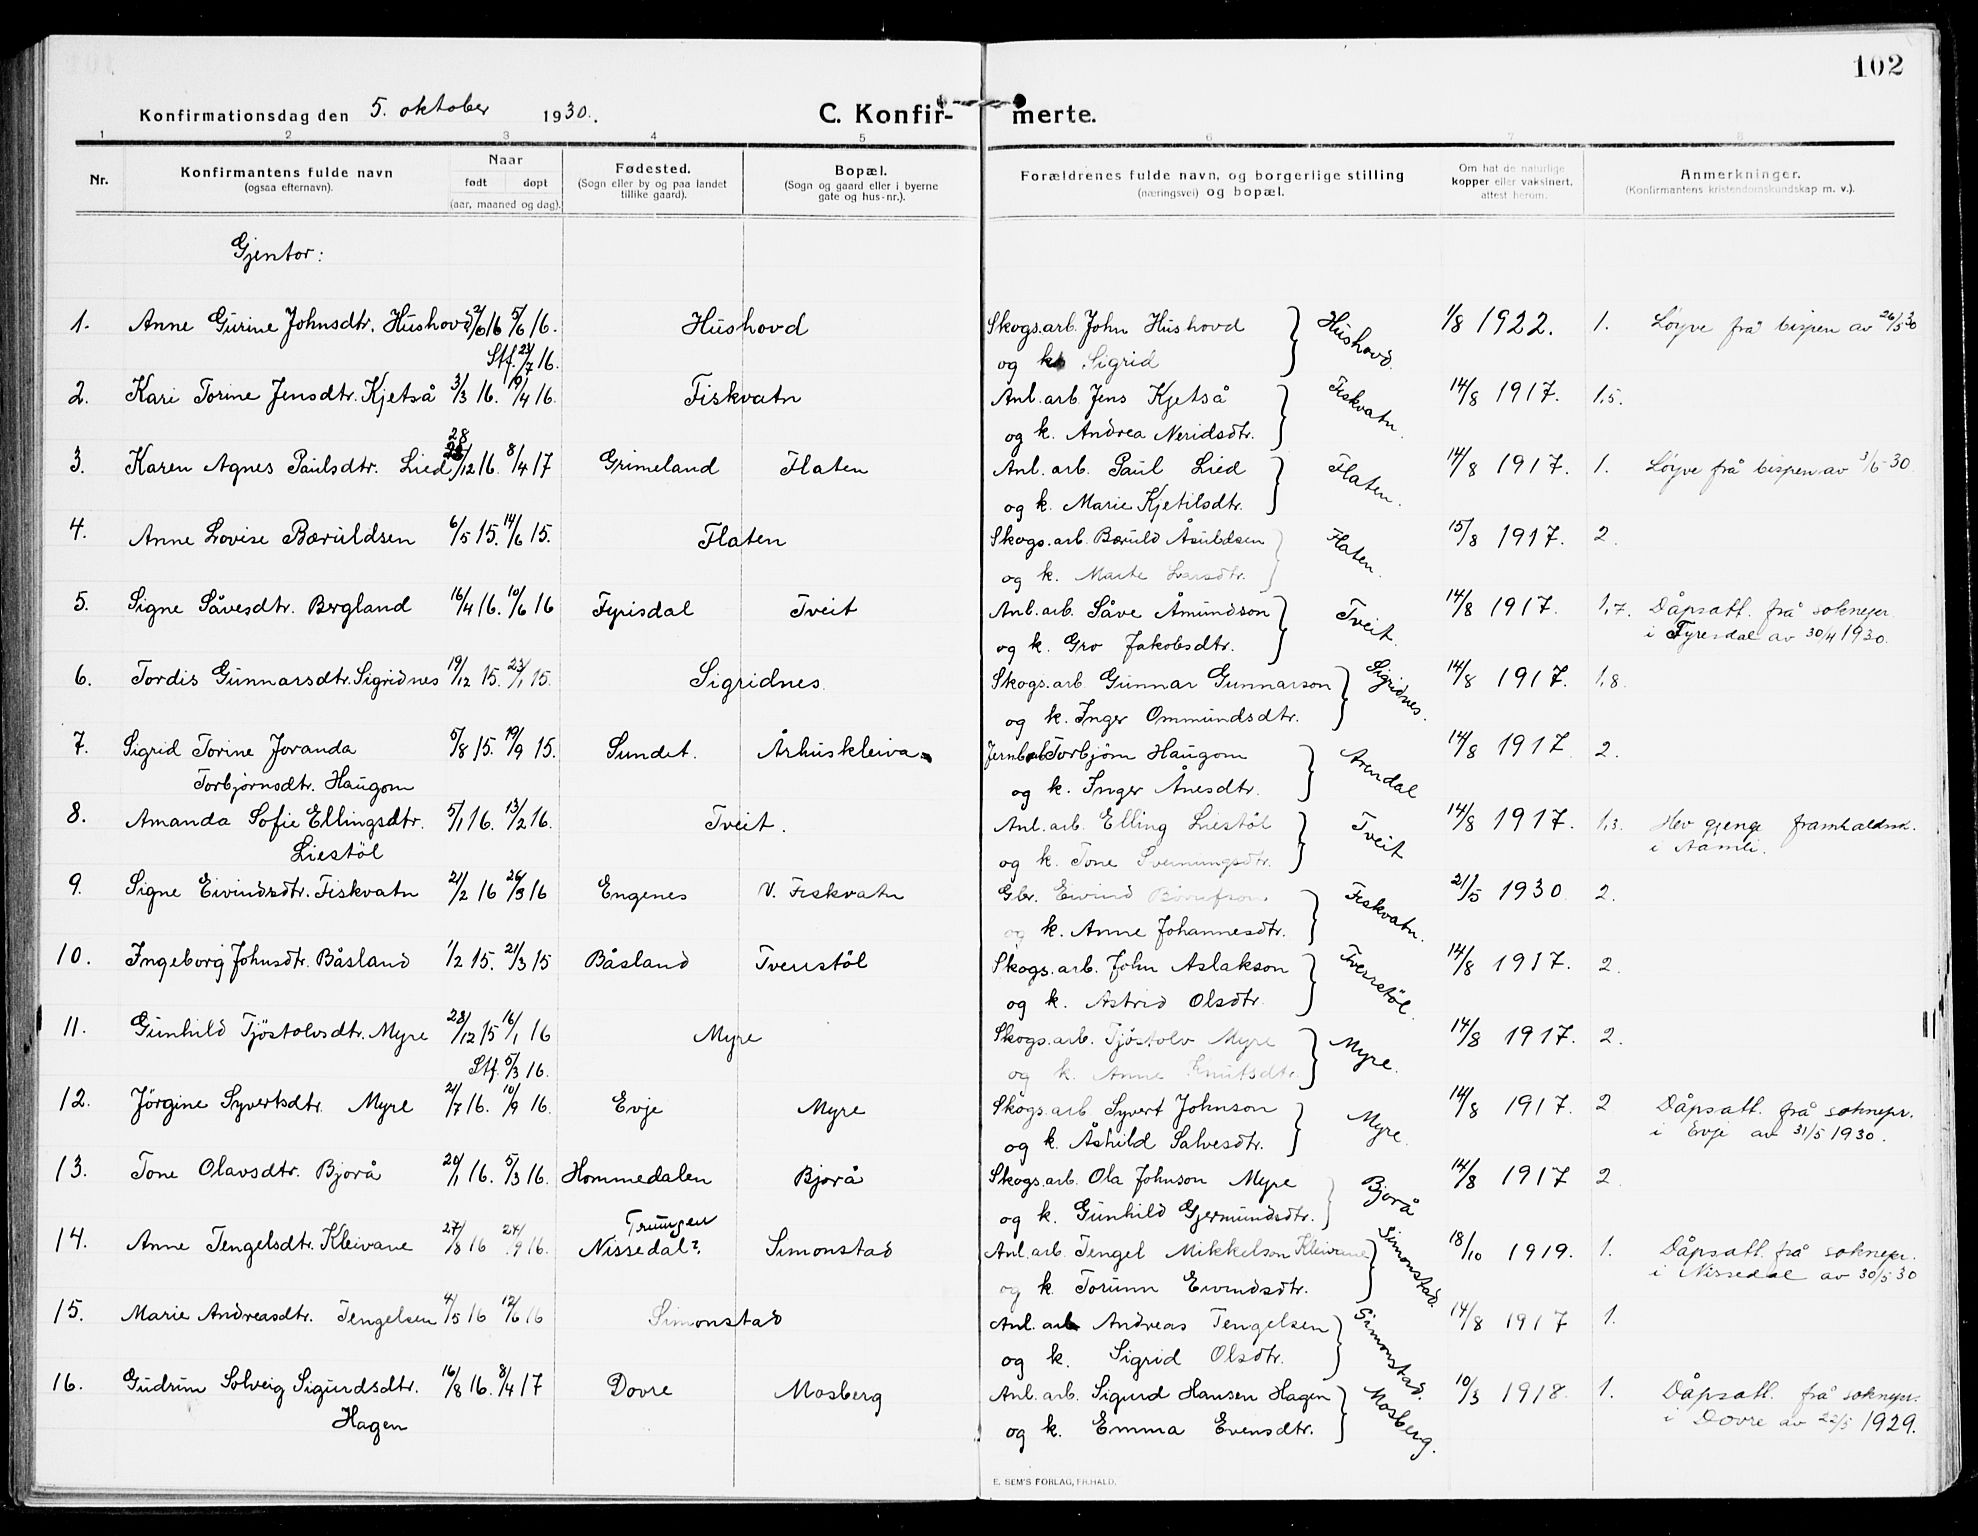 102
Konfirmationsdag den 5. oktober 1930. C. Konfir- merte.
1 2 3 4 5 6 7 8
Nr. Konfirmantens fulde navn (ogsaa efternavn). Naar født døpt (aar, maaned og dag). Fødested. (Sogn eller by og paa landet tillike gaard). Bopæl. (Sogn og gaard eller i byerne gate og hus-nr.). Forældrenes fulde navn, og borgerlige stilling (næringsvei) og bopæl. Om hat de naturlige kopper eller vaksinert, attest herom. Anmerkninger. (Konfirmantens kristendomskundskap m. v.).
Gjentor:
1. Anne Gurine Johnsdtr. Hushovd 5/6 16. Hushovd Skogs.arb. John Hushovd Hushovd. 1/8 1922. 1. Løyve frå bispen av 26/5 30
Stf. 23/7 16. og k. Sigrid
2. Kari Torine Jensdtr. Kjetså 3/3 16. 19/4 16. Fiskvatn Anl.arb. Jens Kjetså Fiskvatn. 14/8 1917. 1,5.
og k. Andrea Neridsdtr.
3. Karen Agnes Paulsdtr. Lied 28/12 16. 8/4 17 Grimeland Flaten Anl. arb. Paul Lied Flaten. 14/8 1917. 1. Løyve frå bispen av 3/6-30
og k. Marie Kjetilsdtr.
4. Anne Lovise Bæruldsen 6/5 15. 14/6 15. Flaten Skogs.arb. Bæruld Åsuldsen Flaten. 15/8 1917. 2.
og k. Marte Larsdtr.
5. Signe Såvesdtr. Bergland 16/4 16. 10/6 16 Fyrisdal Tveit Anl.arb. Såve Åmundson Tveit. 14/8 1917. 1,7. Dåpsatt. frå soknepr.
og k. Gro Jakobsdtr. i Fyresdal av 30/4 1930.
6. Tordis Gunnarsdtr. Sigridnes 19/12 15. 23/1 15. Sigridnes Skogs.arb. Gunnar Gunnarson Sigridnes. 14/8 1917. 1,8.
og k. Inger Ommundsdtr.
7. Sigrid Torine Joranda 5/8 15. 19/9 15. Sundet. Århuskleiva Jernb.arb. Torbjørn Haugom Arendal 14/8 1917 2.
Torbjørnsdtr. Haugom og k. Inger Ånesdtr.
8. Amanda Sofie Ellingsdtr. 5/1 16. 13/2 16. Tveit. Anl. arb. Elling Liestöl Tveit 14/8 1917. 1,3. Hev gjenge framhaldssk.
Liestöl og k. Tone Sveinungsdtr. i Aamli.
9. Signe Eivindsdtr. Fiskvatn 21/2 16 26/3 16 Engenes V. Fiskvatn Gbr. Eivind Fiskvatn. 21/5 1930 2.
og k. Anne Johannesdtr.
10. Ingeborg Johnsdtr. Båsland 1/2 15. 21/3 15 Båsland Tverrstöl Skogs.arb. John Aslakson Tverrstöl. 14/8 1917. 2.
og k. Astrid Olsdtr.
11. Gunhild Tjöstolvsdtr. Myre 28/12 15 16/1 16 Myre Skogs.arb. Tjöstolv Myre Myre. 14/8 1917. 2.
Stf. 5/3 16. og k. Anne Knutsdtr.
12. Jörgine Syvertsdtr. Myre 21/7 16. 10/9 16. Evje Myre Skogs.arb. Syvert Johnson Myre. 14/8 1917. 2 Dåpsatt. frå soknepr.
og k. Åshild Salvesdtr. i Evje av 31/5 1930.
13. Tone Olavsdtr. Bjorå 20/1 16. 5/3 16. Hommedalen Bjorå Skogs.arb. Ola Johnson Myre Bjorå 14/8 1917 2.
og k. Gunhild Gjermundsdtr.
14. Anne Tengelsdtr. Kleivane 27/8 16 24/9 16. Nissedal?. Simonstad Anl. arb. Tengel Mikkelson Kleivane Simonstad. 18/10 1919. 1. Dåpsatt. frå soknepr.
og k. Torunn Eivindsdtr. i Nissedal av 30/5 30
15. Marie Andreasdtr. Tengelsen 4/5 16 12/6 16 Simonstad Anl. arb. Andreas Tengelsen Simonstad. 14/8 1917 1.
og k. Sigrid Olsdtr.
16. Gudrun Solveig Sigurdsdtr. 16/8 16. 8/4 17 Dovre Mosberg Anl. arb. Sigurd Hansen Hagen Mosberg. 10/3 1918. 1. Dåpsatt. frå soknepr.
Hagen og k. Emma Evensdtr. i Dovre av 22/5 1929.
E. SEM'S FORLAG, FR.HALD.